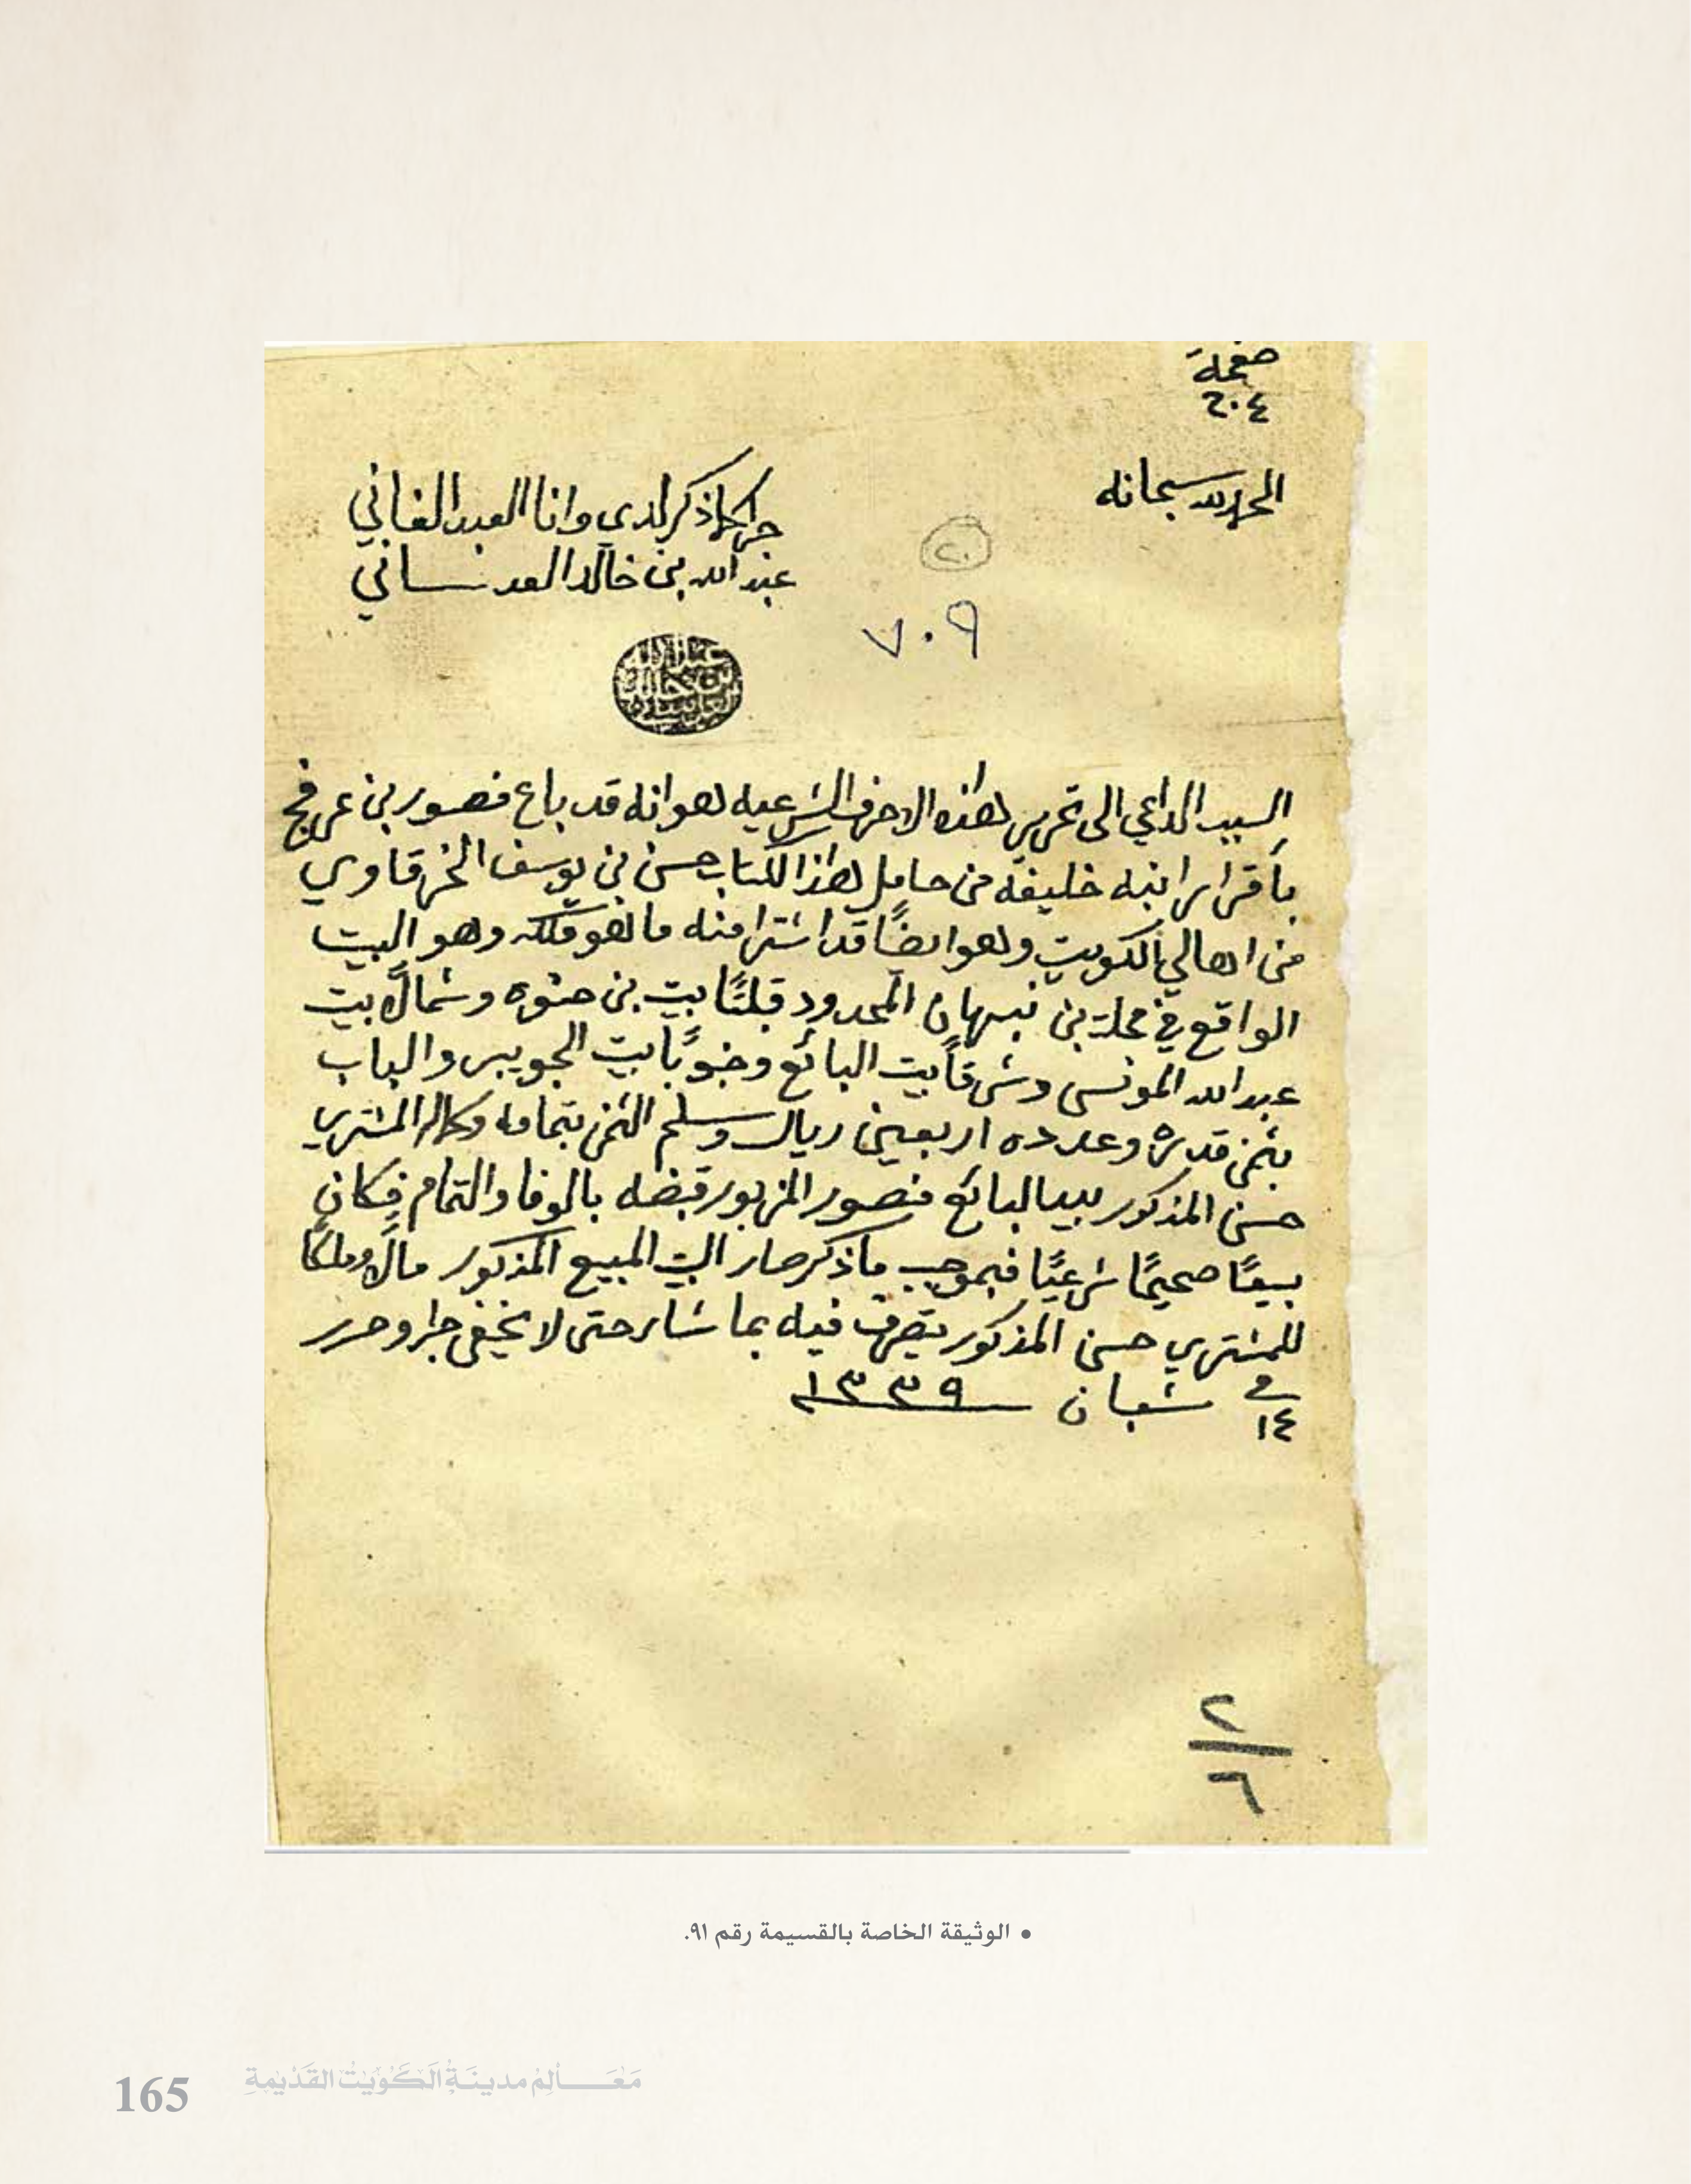 صفحة
٢٠٤
الحمد لله سبحانه
جرا كما ذكر لدي وانا العبد الفاني
عبد الله بن خالد العدساني
٢٠
٧٠٩
عبد الله بن خالد
السبب الداعي الى تحرير هذه الاحرف الشرعيه هو انه قد باع منصور بن عرفج
بأقرار ابنه خليفه من حامل هذا الكتاب حسن بن يوسف الخرقاوي
من اهالي الكويت وهو ايضًا قد اشترا منه ما هو ملكه وهو البيت
الواقع في محلة بن نبهان المحدود قبلتًا بيت بن حثوه وشمالًا بيت
عبد الله المونس وشرقاً بيت البائع وجنوبًا بيت الجويبر والباب
بثمن قدره وعدده اربعين ريال وسلم الثمن بتمامه وكاله المشتري
حسن المذكور بيد البائع منصور المزبور قبضه بالوفا والتمام فكان
بيعًا صحيحًا شرعيًا فبموجب ماذكر صار البيت المبيع المذكور مالًا وملكًا
للمشتري حسن المذكور يتصرف فيه بما شا رحتى لا يخفى جرا وحرر
في ١٤ شعبان ١٣٣٩
٢/٦
• الوثيقة الخاصة بالقسيمة رقم ٩١.
165 مَعَالِم مدينَة الكُوَيْت القَدْيمةِ